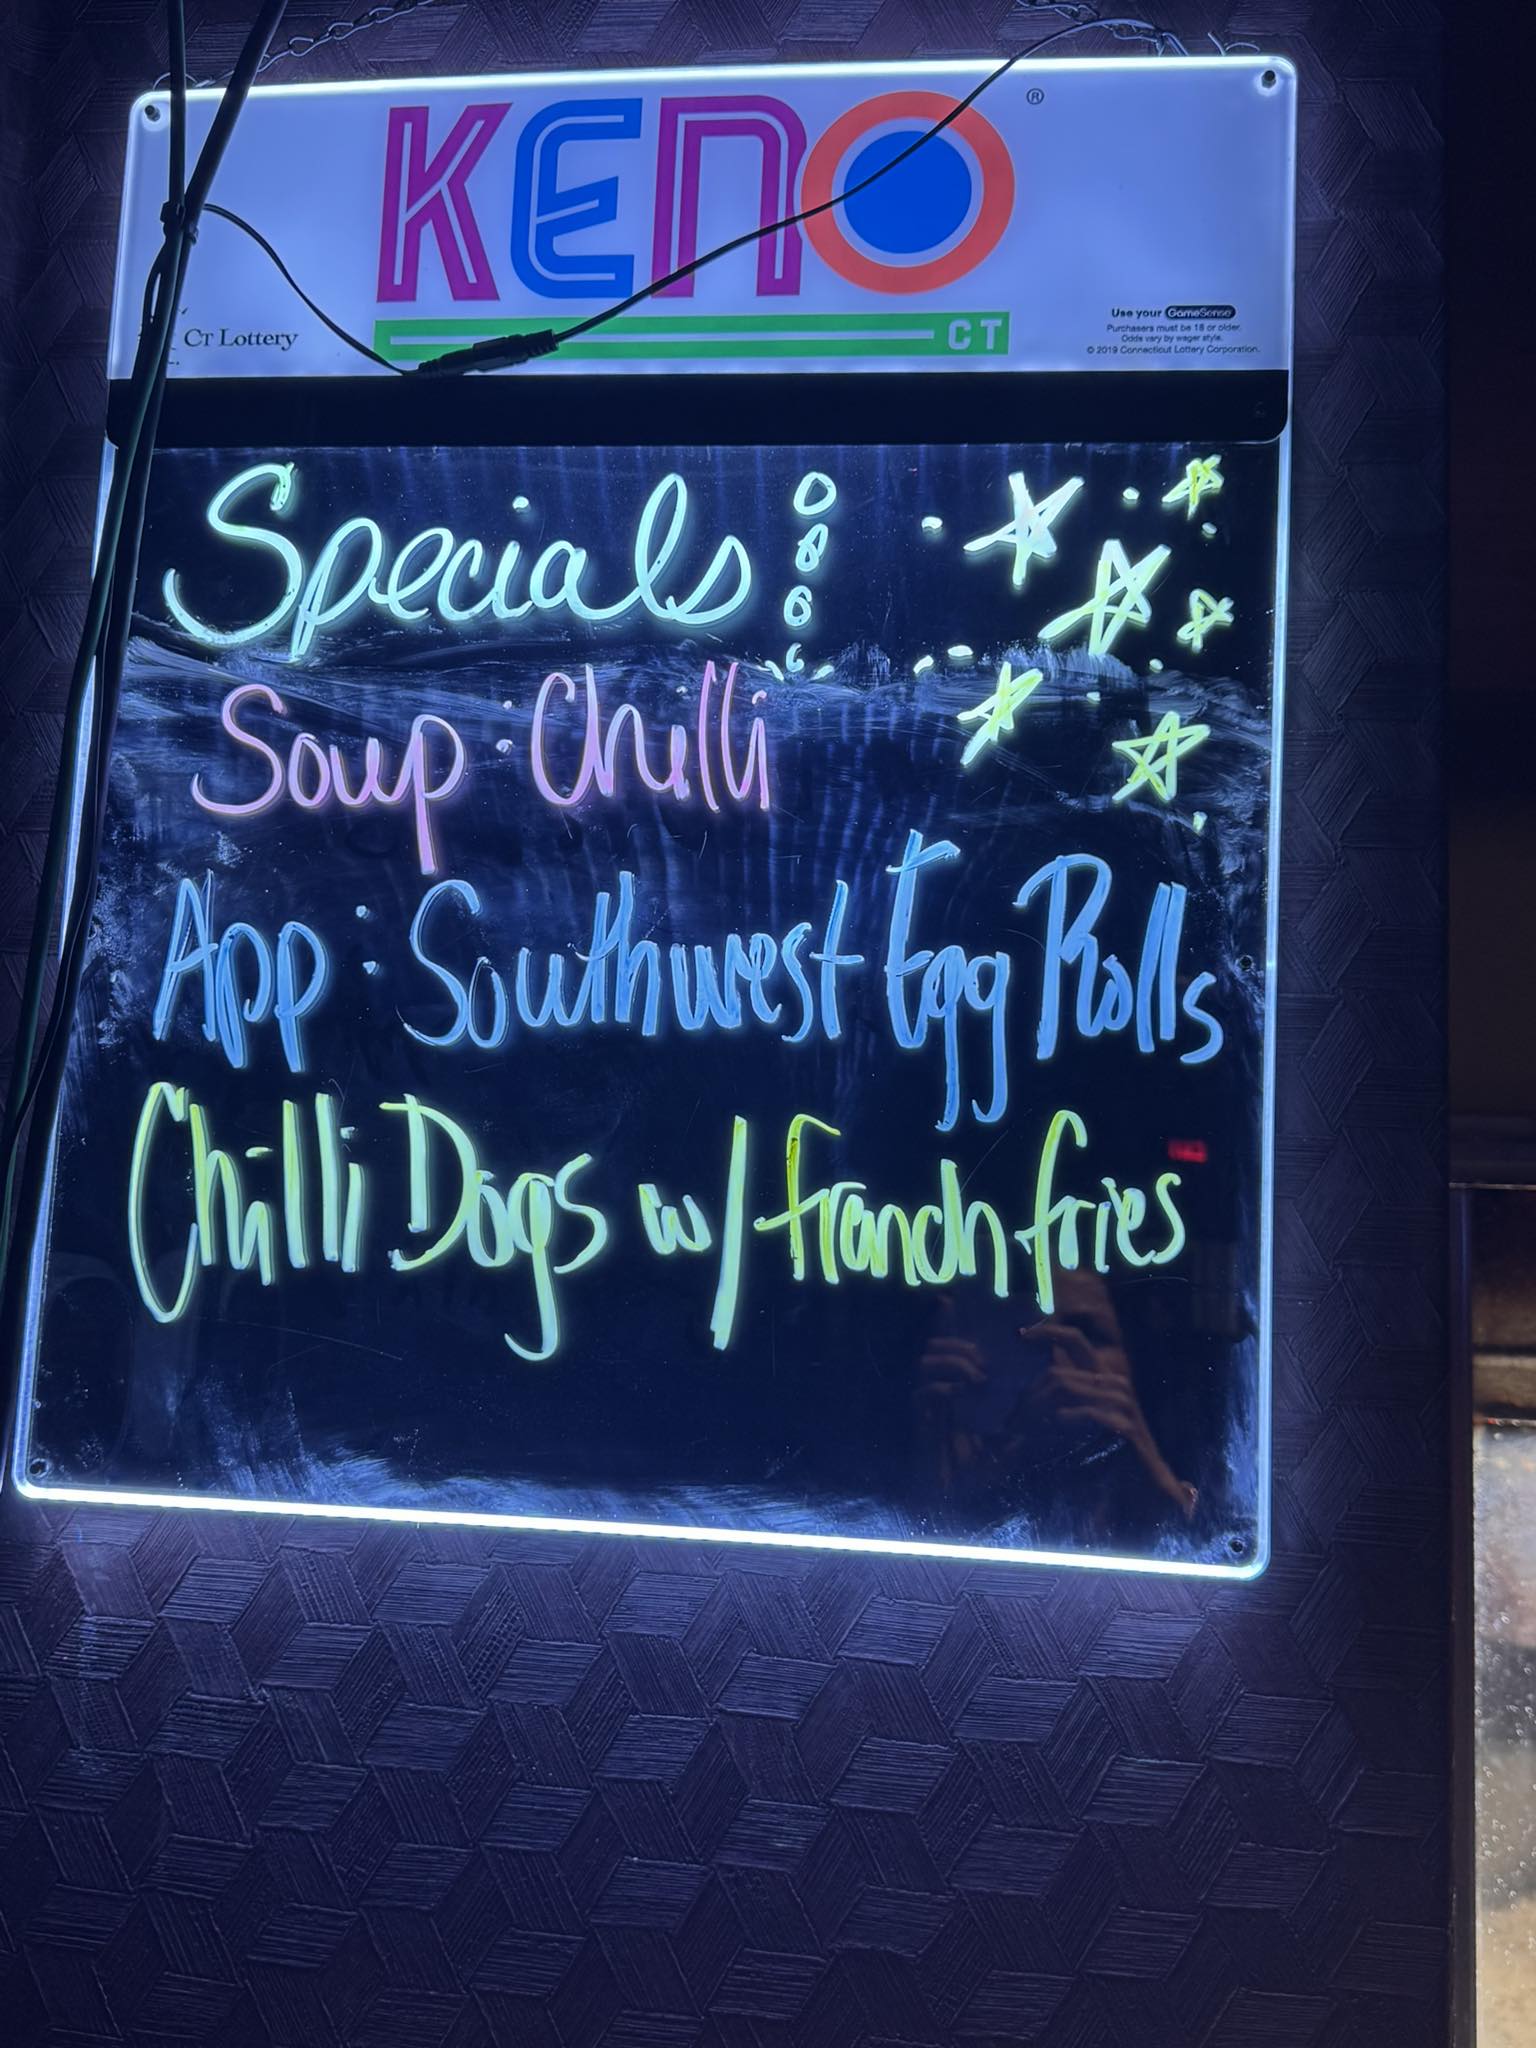 KENO ®
CT
CT Lottery
Use your GameSense
Purchasers must be 18 or older.
Odds vary by wager style.
© 2019 Connecticut Lottery Corporation.
Specials
Soup: Chilli
App: Southwest Egg Rolls
Chilli Dogs w/ french fries